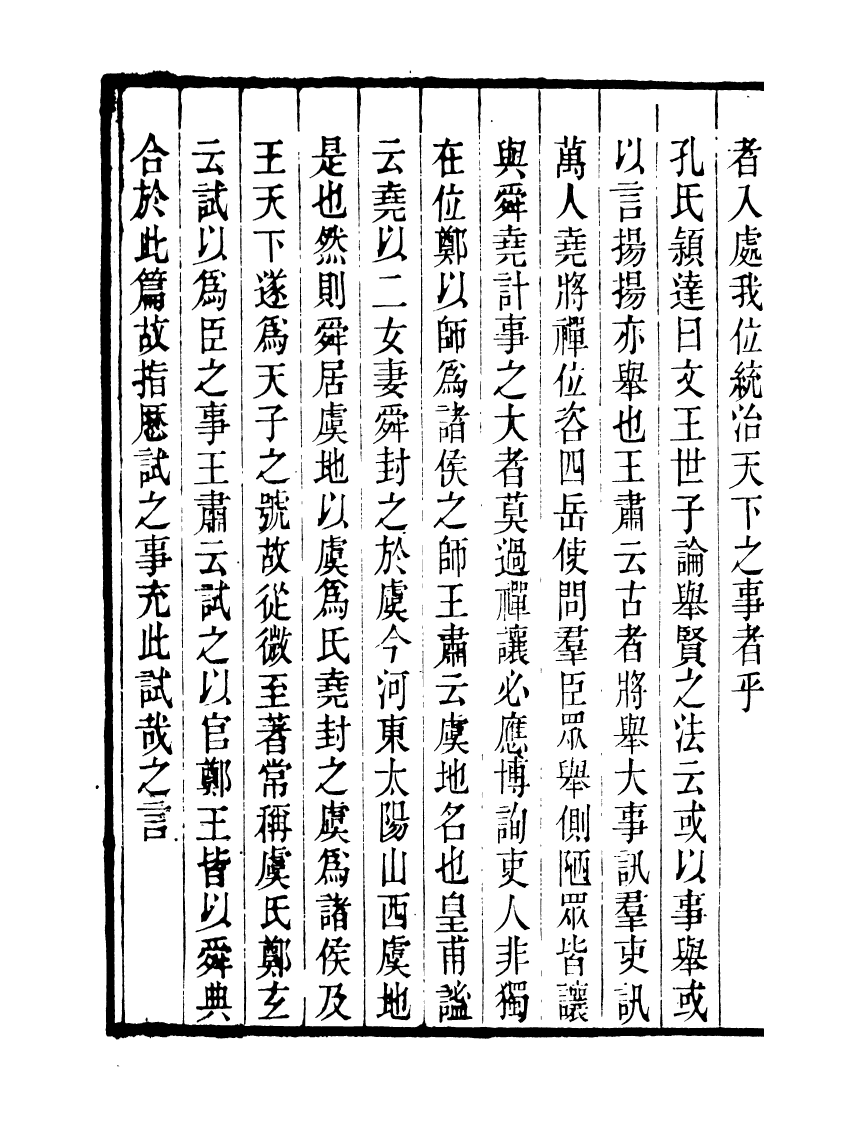 者入處我位統治天下之事者乎
孔氏潁達曰文王世子論舉賢之法云或以事舉或
以言揚揚亦舉也王肅云古者將舉大事訊羣吏訊
萬人堯將禪位咨四岳使問羣臣眾舉側陋眾皆讓
與舜堯計事之大者莫過禪讓必應博詢吏人非獨
在位鄭以師爲諸侯之師王肅云虞地名也皇甫謐
云堯以二女妻舜封之於虞今河東太陽山西虞地
是也然則舜居虞地以虞爲氏堯封之虞爲諸侯及
王天下遂爲天子之號故從微至著常稱虞氏鄭玄
云試以爲臣之事王肅云試之以官鄭王皆以舜典
合於此篇故指歷試之事充此試哉之言